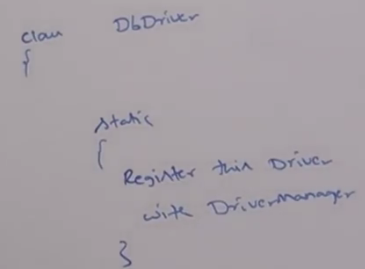 class DbDriver
{
static
{
Register this Driver
with DriverManager
}